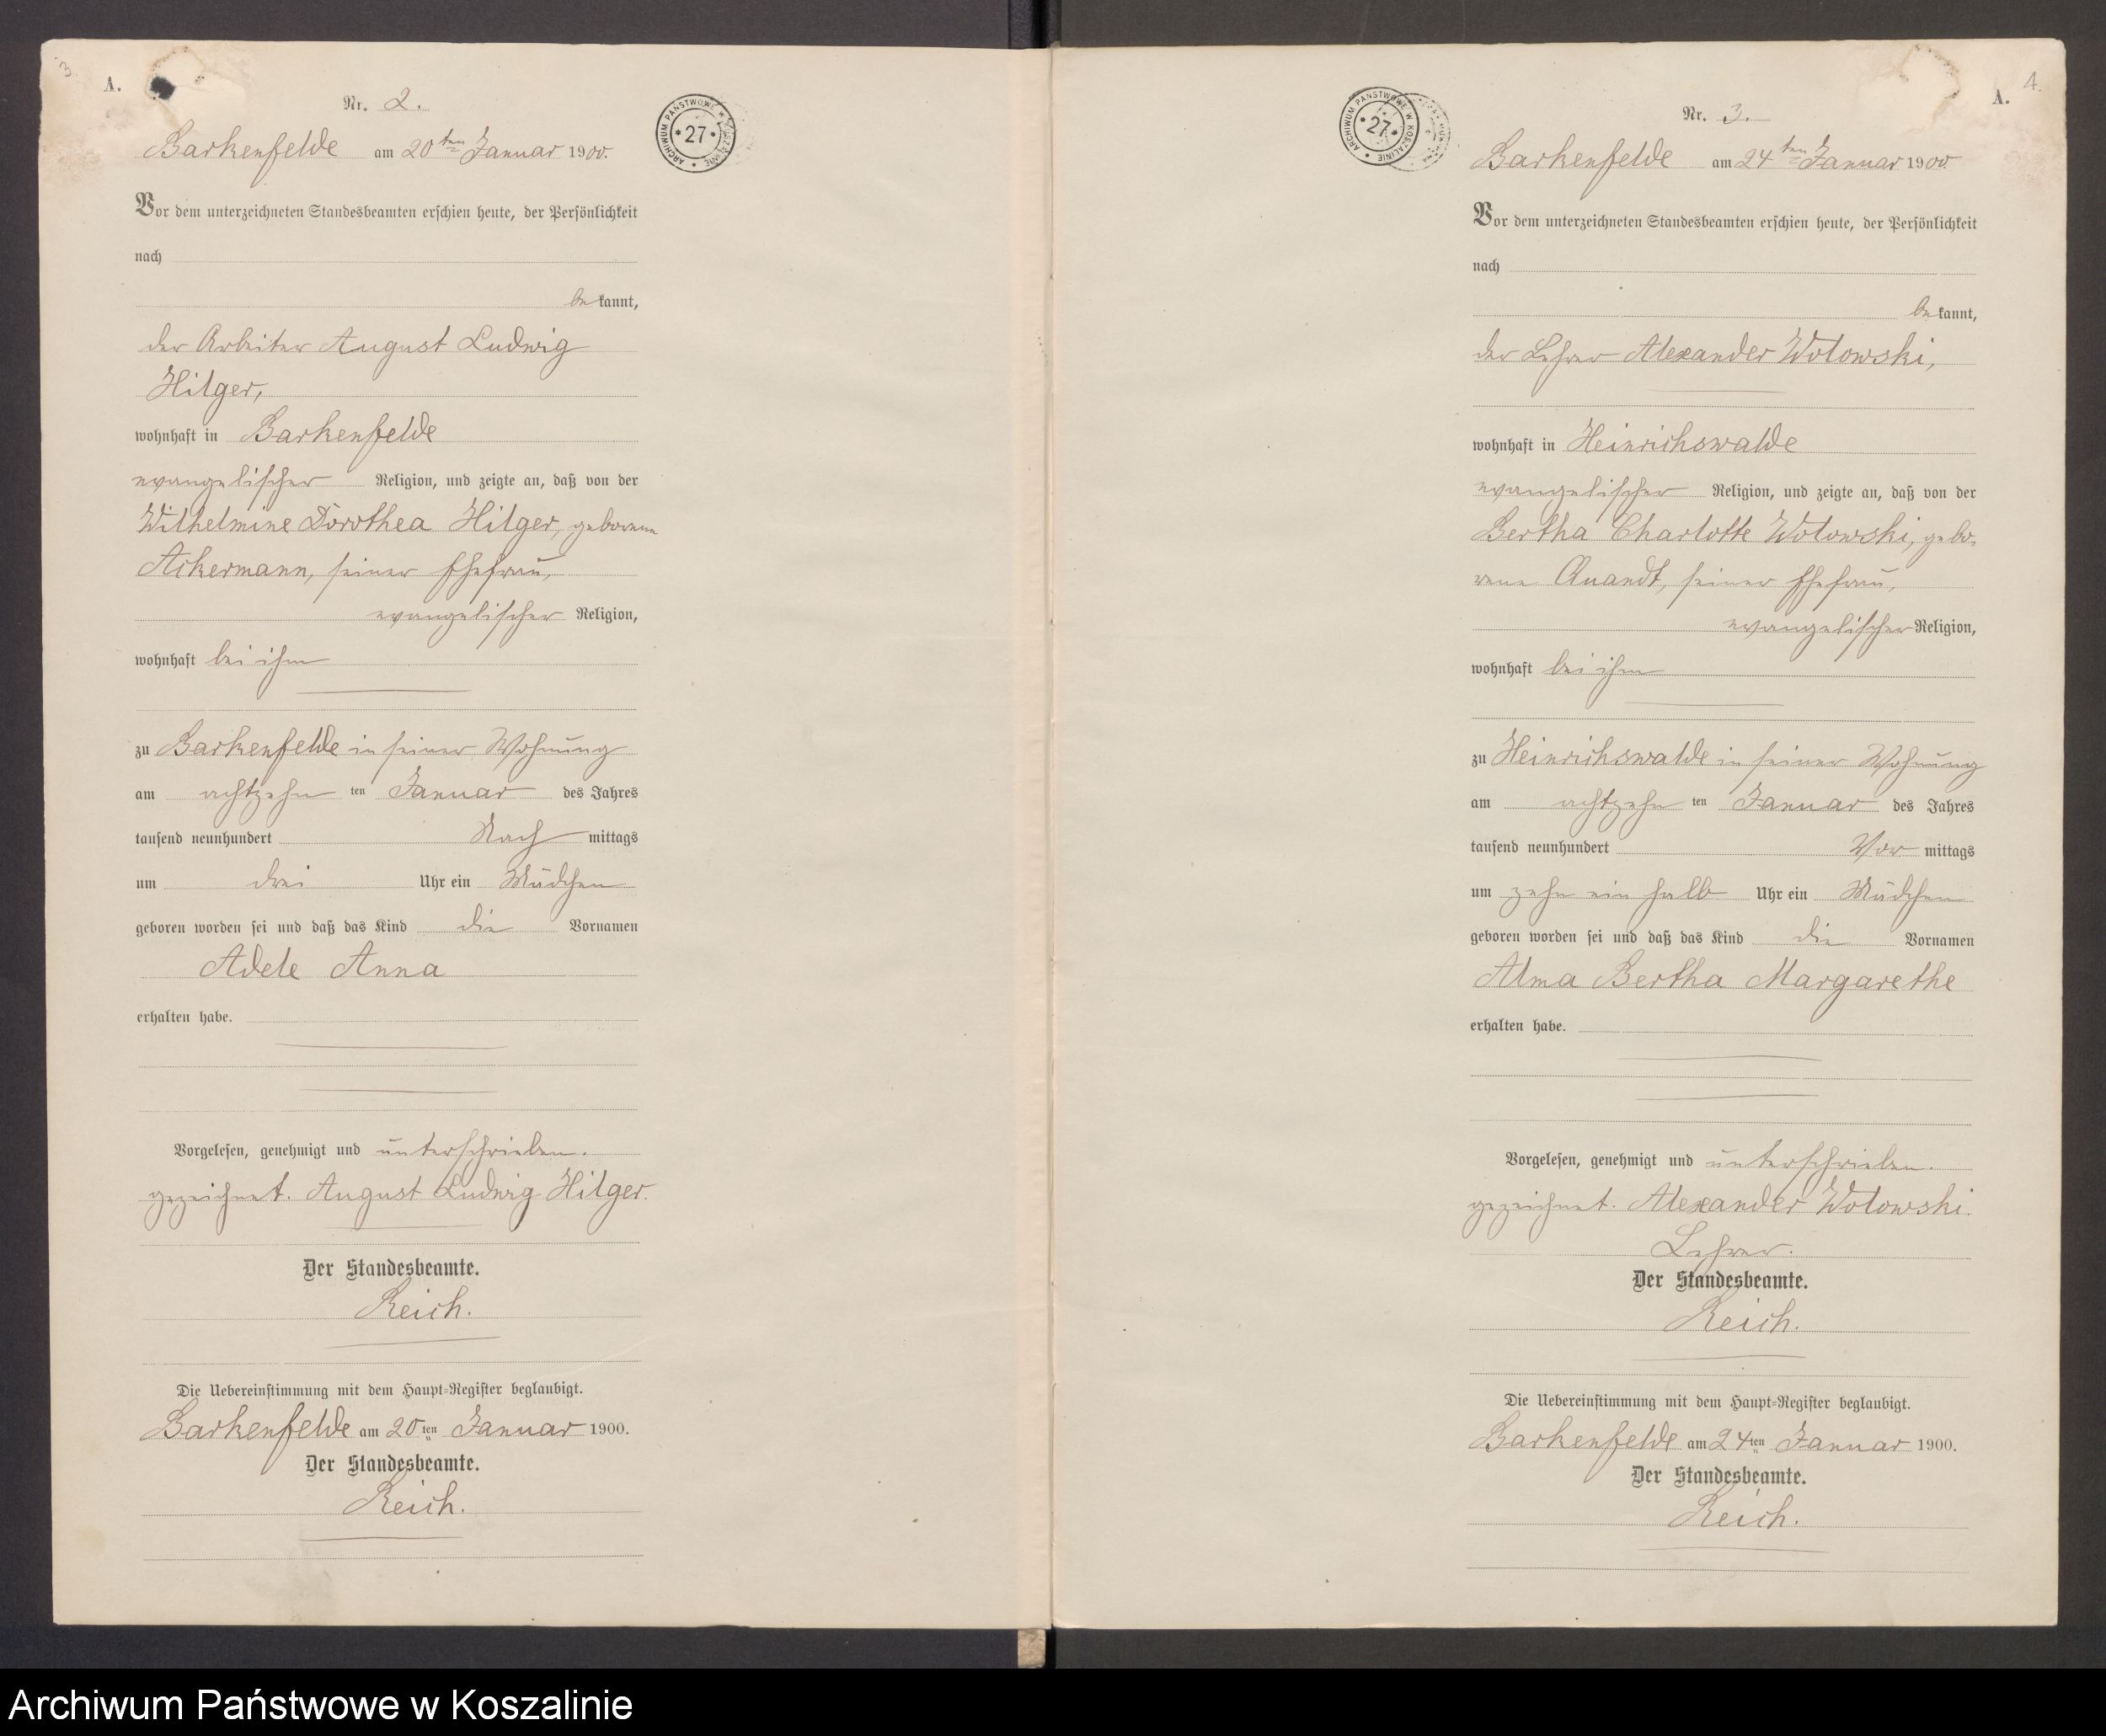 3
A.
Nr. 2.
Barkenfelde am 20ten Januar 1900.
Vor dem unterzeichneten Standesbeamten erschien heute, der Persönlichkeit
nach
bekannt,
der Arbeiter August Ludwig
Hilger,
wohnhaft in Barkenfelde
evangelischer Religion, und zeigte an, daß von der
Wilhelmine Dorothea Hilger, geborene
Ackermann, seiner Ehefrau,
evangelischer Religion,
wohnhaft bei ihm
zu Barkenfelde in seiner Wohnung
am achtzehn ten Januar des Jahres
tausend neunhundert Nach mittags
um drei Uhr ein Mädchen
geboren worden sei und daß das Kind die Vornamen
Adele Anna
erhalten habe.
Vorgelesen, genehmigt und unterschrieben.
gezeichnet. August Ludwig Hilger.
Der Standesbeamte.
Reich.
Die Uebereinstimmung mit dem Haupt-Register beglaubigt.
Barkenfelde am 20ten Januar 1900.
Der Standesbeamte.
Reich.
ARCHIWUM PAŃSTWOWE W KOSZALINIE
* 27 *
ARCHIWUM PAŃSTWOWE W KOSZALINIE
* 27 *
4.
A.
Nr. 3.
Barkenfelde am 24ten Januar 1900
Vor dem unterzeichneten Standesbeamten erschien heute, der Persönlichkeit
nach
bekannt,
der Lehrer Alexander Wolowski,
wohnhaft in Heinrichswalde
evangelischer Religion, und zeigte an, daß von der
Bertha Charlotte Wolowski, gebo-
rene Quandt, seiner Ehefrau,
evangelischer Religion,
wohnhaft bei ihm
zu Heinrichswalde in seiner Wohnung
am achtzehn ten Januar des Jahres
tausend neunhundert Vor mittags
um zehn ein halb Uhr ein Mädchen
geboren worden sei und daß das Kind die Vornamen
Alma Bertha Margarethe
erhalten habe.
Vorgelesen, genehmigt und unterschrieben.
gezeichnet. Alexander Wolowski.
Lehrer.
Der Standesbeamte.
Reich.
Die Uebereinstimmung mit dem Haupt-Register beglaubigt.
Barkenfelde am 24ten Januar 1900.
Der Standesbeamte.
Reich.
Archiwum Państwowe w Koszalinie